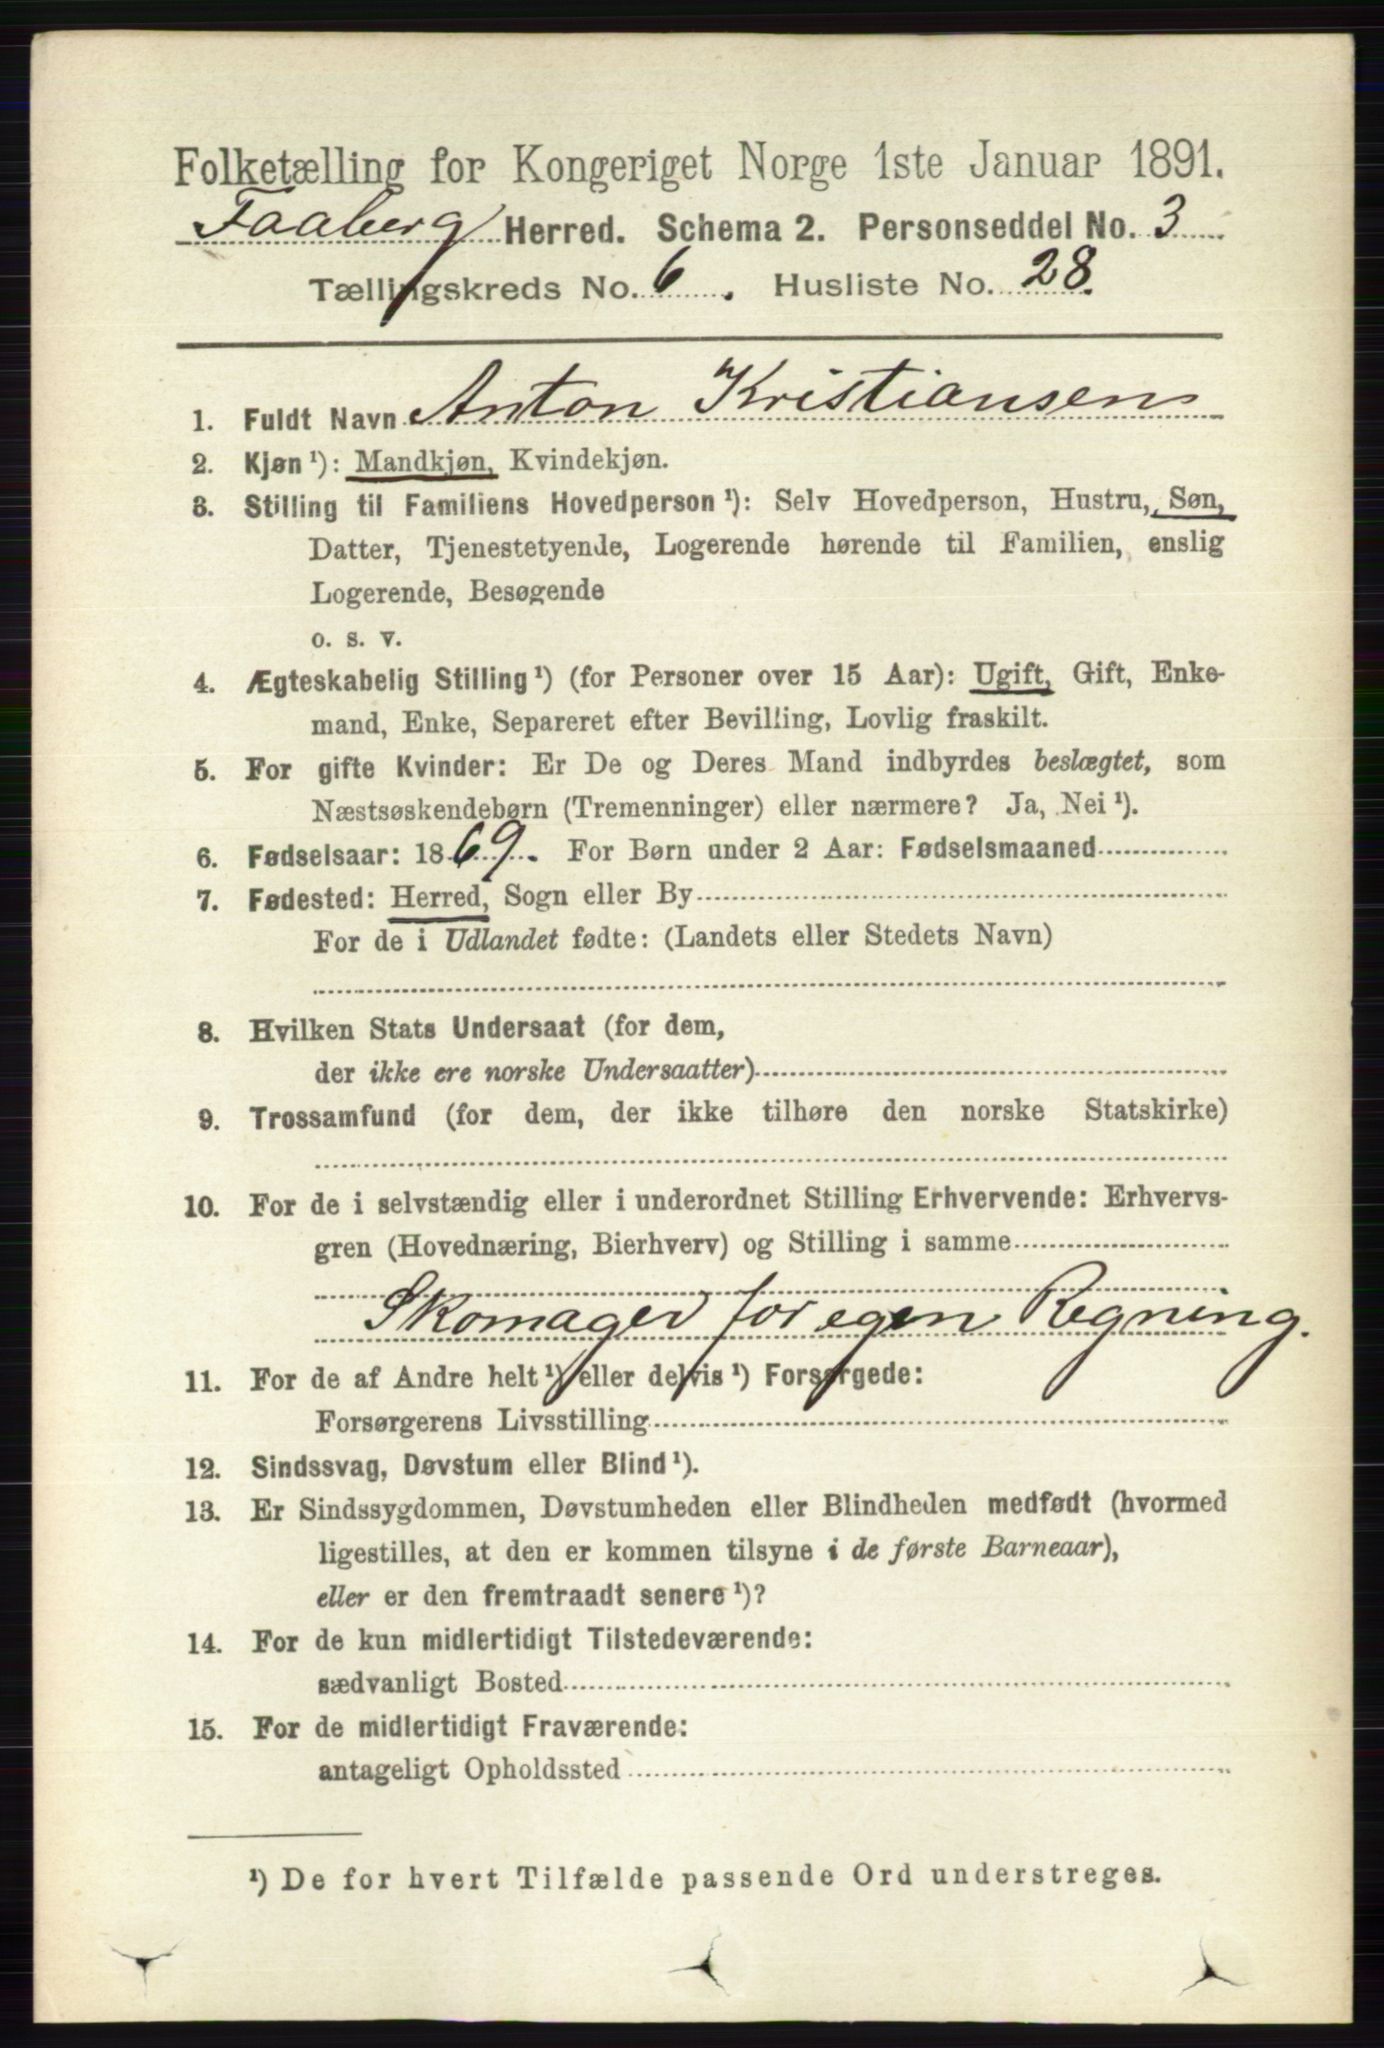 Folketælling for Kongeriget Norge 1ste Januar 1891.
Faaberg Herred. Schema 2. Personseddel No. 3
Tællingskreds No. 6. Husliste No. 28.
1. Fuldt Navn Anton Kristiansen
2. Kjøn¹): Mandkjøn, Kvindekjøn.
3. Stilling til Familiens Hovedperson¹): Selv Hovedperson, Hustru, Søn,
Datter, Tjenestetyende, Logerende hørende til Familien, enslig
Logerende, Besøgende
o. s. v.
4. Ægteskabelig Stilling¹) (for Personer over 15 Aar): Ugift, Gift, Enke-
mand, Enke, Separeret efter Bevilling, Lovlig fraskilt.
5. For gifte Kvinder: Er De og Deres Mand indbyrdes beslægtet, som
Næstsøskendebørn (Tremenninger) eller nærmere? Ja, Nei¹).
6. Fødselsaar: 1869. For Børn under 2 Aar: Fødselsmaaned
7. Fødested: Herred, Sogn eller By
For de i Udlandet fødte: (Landets eller Stedets Navn)
8. Hvilken Stats Undersaat (for dem,
der ikke ere norske Undersaatter)
9. Trossamfund (for dem, der ikke tilhøre den norske Statskirke)
10. For de i selvstændig eller i underordnet Stilling Erhvervende: Erhvervs-
gren (Hovednæring, Bierhverv) og Stilling i samme
Skomager for egen Regning.
11. For de af Andre helt¹) eller delvis¹) Forsørgede:
Forsørgerens Livsstilling
12. Sindssvag, Døvstum eller Blind¹).
13. Er Sindssygdommen, Døvstumheden eller Blindheden medfødt (hvormed
ligestilles, at den er kommen tilsyne i de første Barneaar),
eller er den fremtraadt senere¹)?
14. For de kun midlertidigt Tilstedeværende:
sædvanligt Bosted
15. For de midlertidigt Fraværende:
antageligt Opholdssted
¹) De for hvert Tilfælde passende Ord understreges.